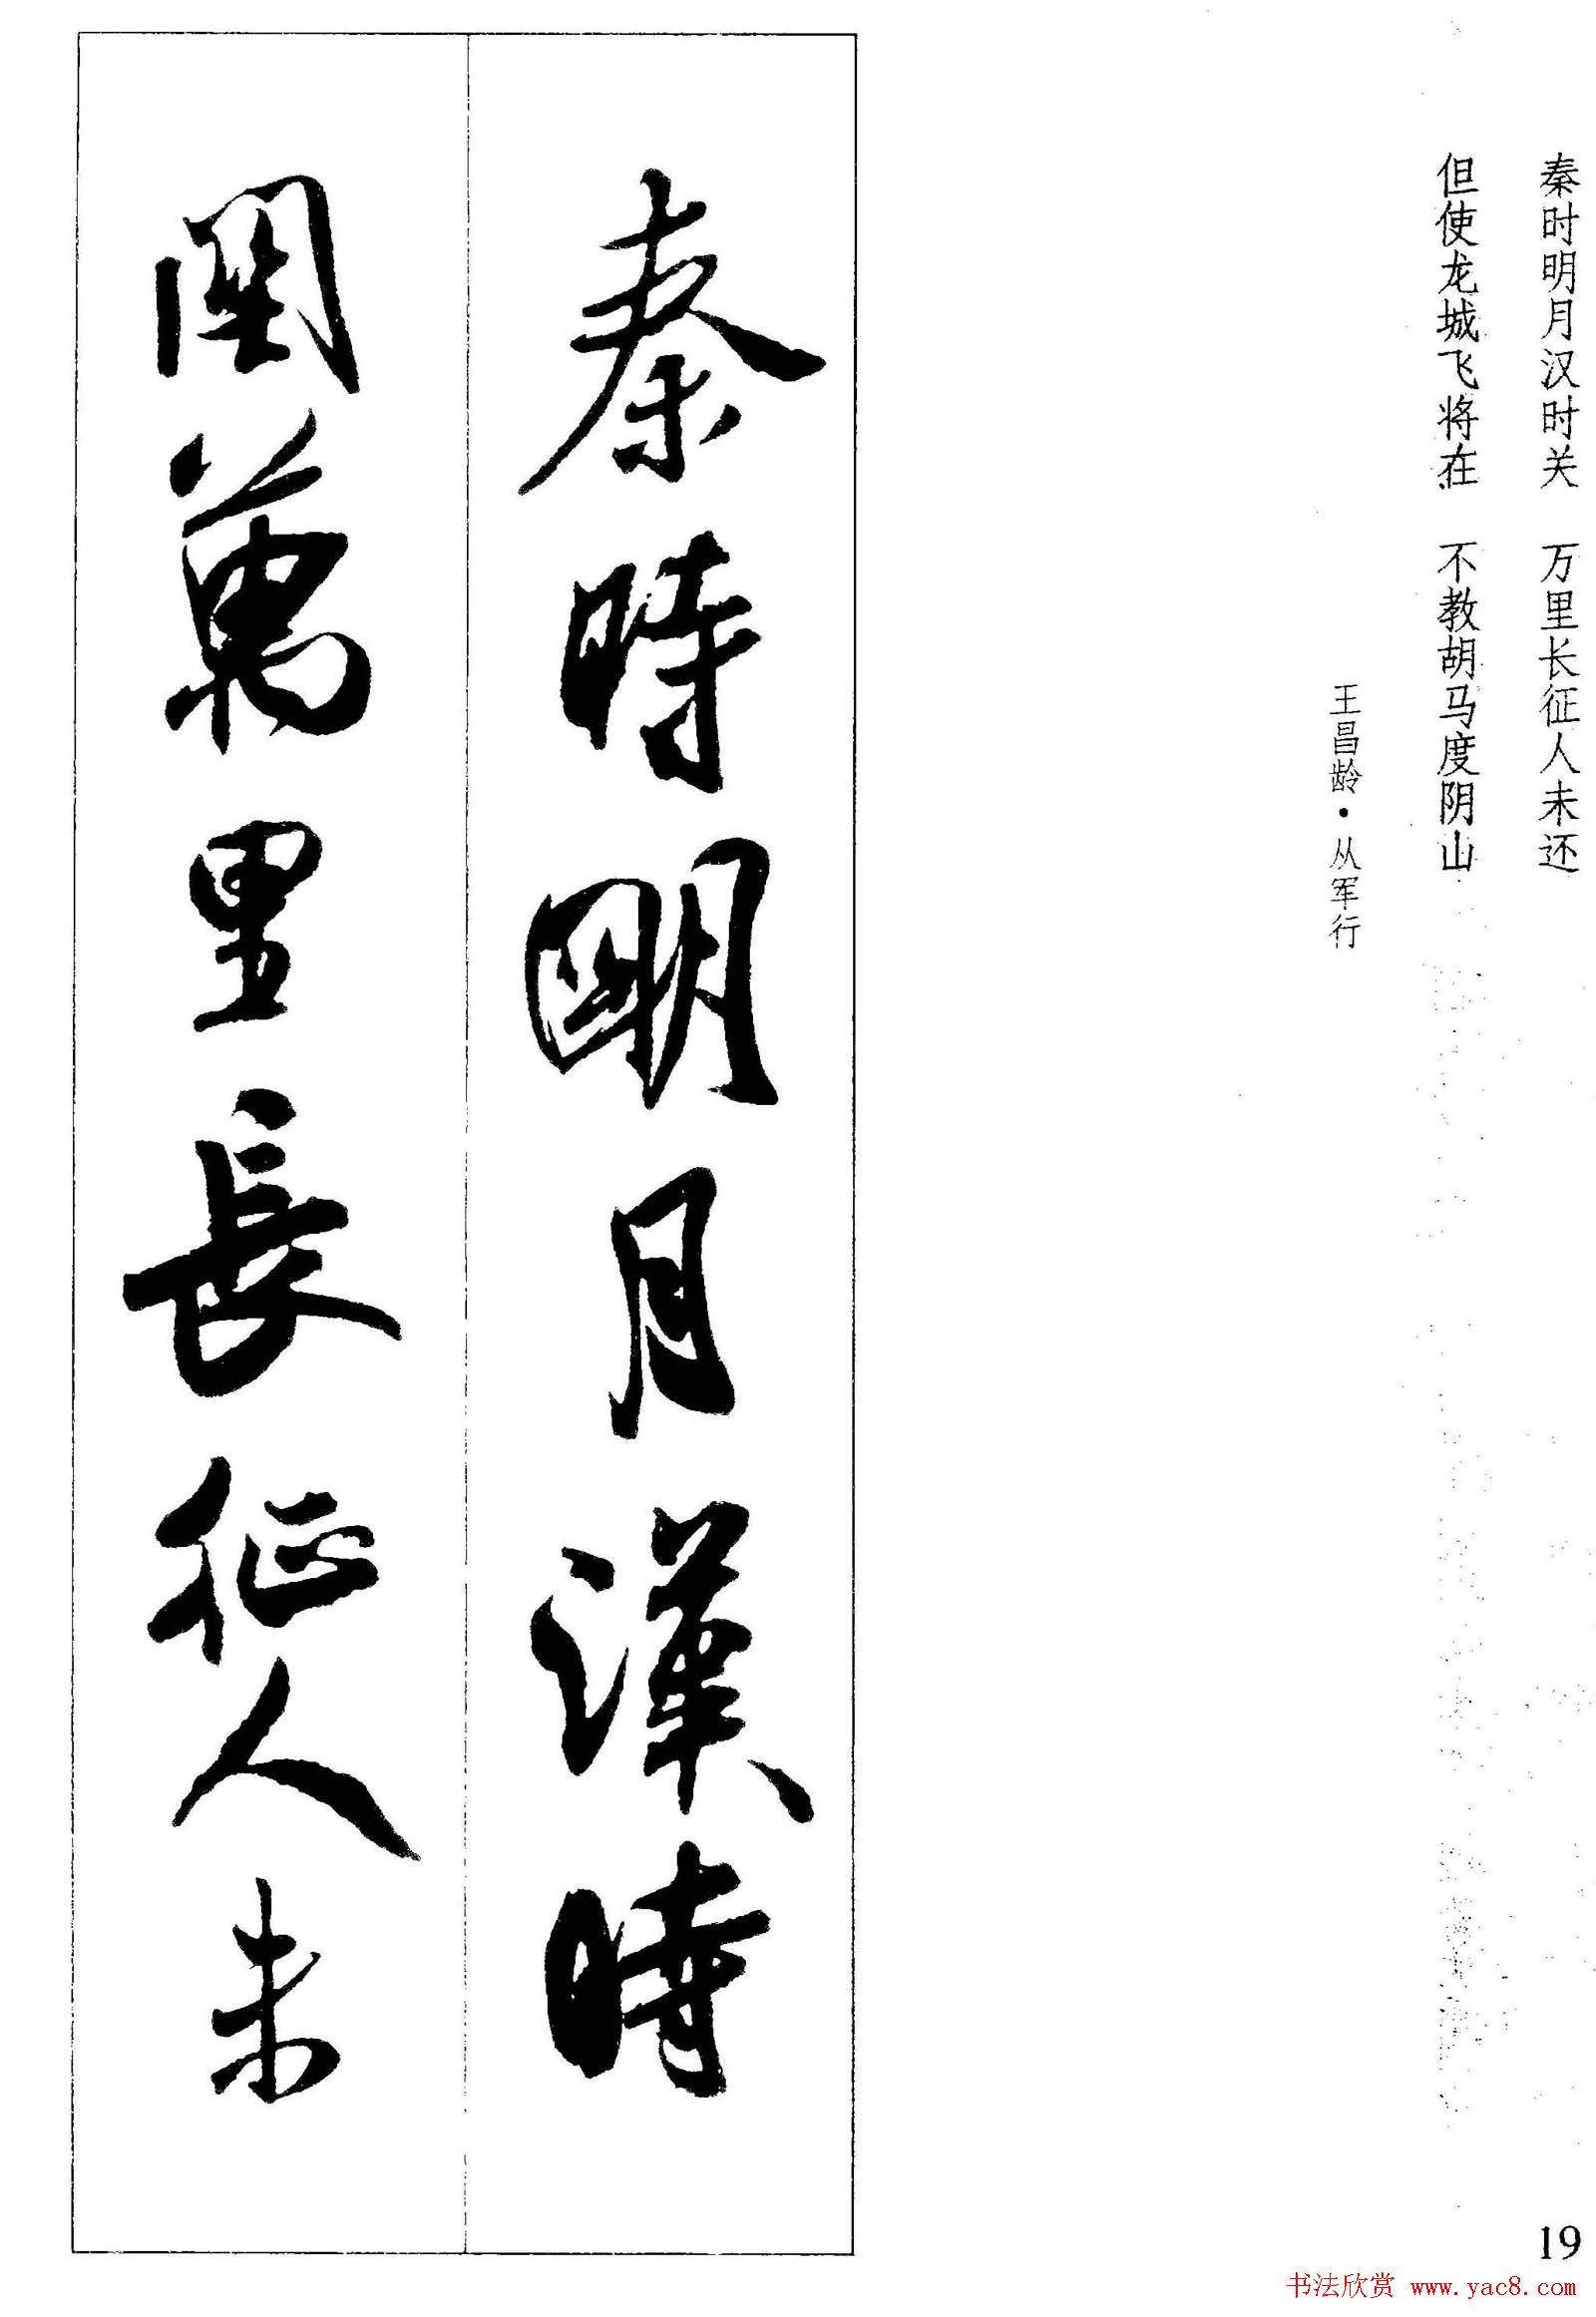 秦时明月汉时关 万里长征人未还
但使龙城飞将在 不教胡马度阴山
王昌龄·从军行
秦時明月漢時
關萬里長征人未
19
书法欣赏 www.yac8.com